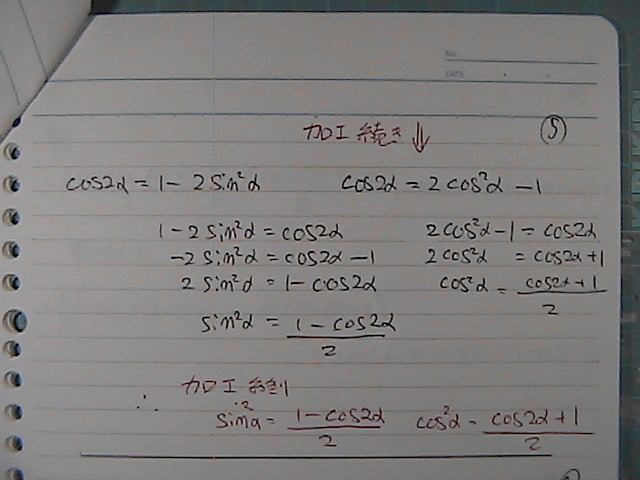 No.
DATE
加工続き ↓ ⑤
cos2α = 1 - 2 sin²α cos2α = 2 cos²α - 1
1 - 2 sin²α = cos2α 2 cos²α - 1 = cos2α
-2 sin²α = cos2α - 1 2 cos²α = cos2α + 1
2 sin²α = 1 - cos2α cos²α = (cos2α + 1)/2
sin²α = (1 - cos2α)/2
加工
∴ sin²α = (1 - cos2α)/2 cos²α = (cos2α + 1)/2